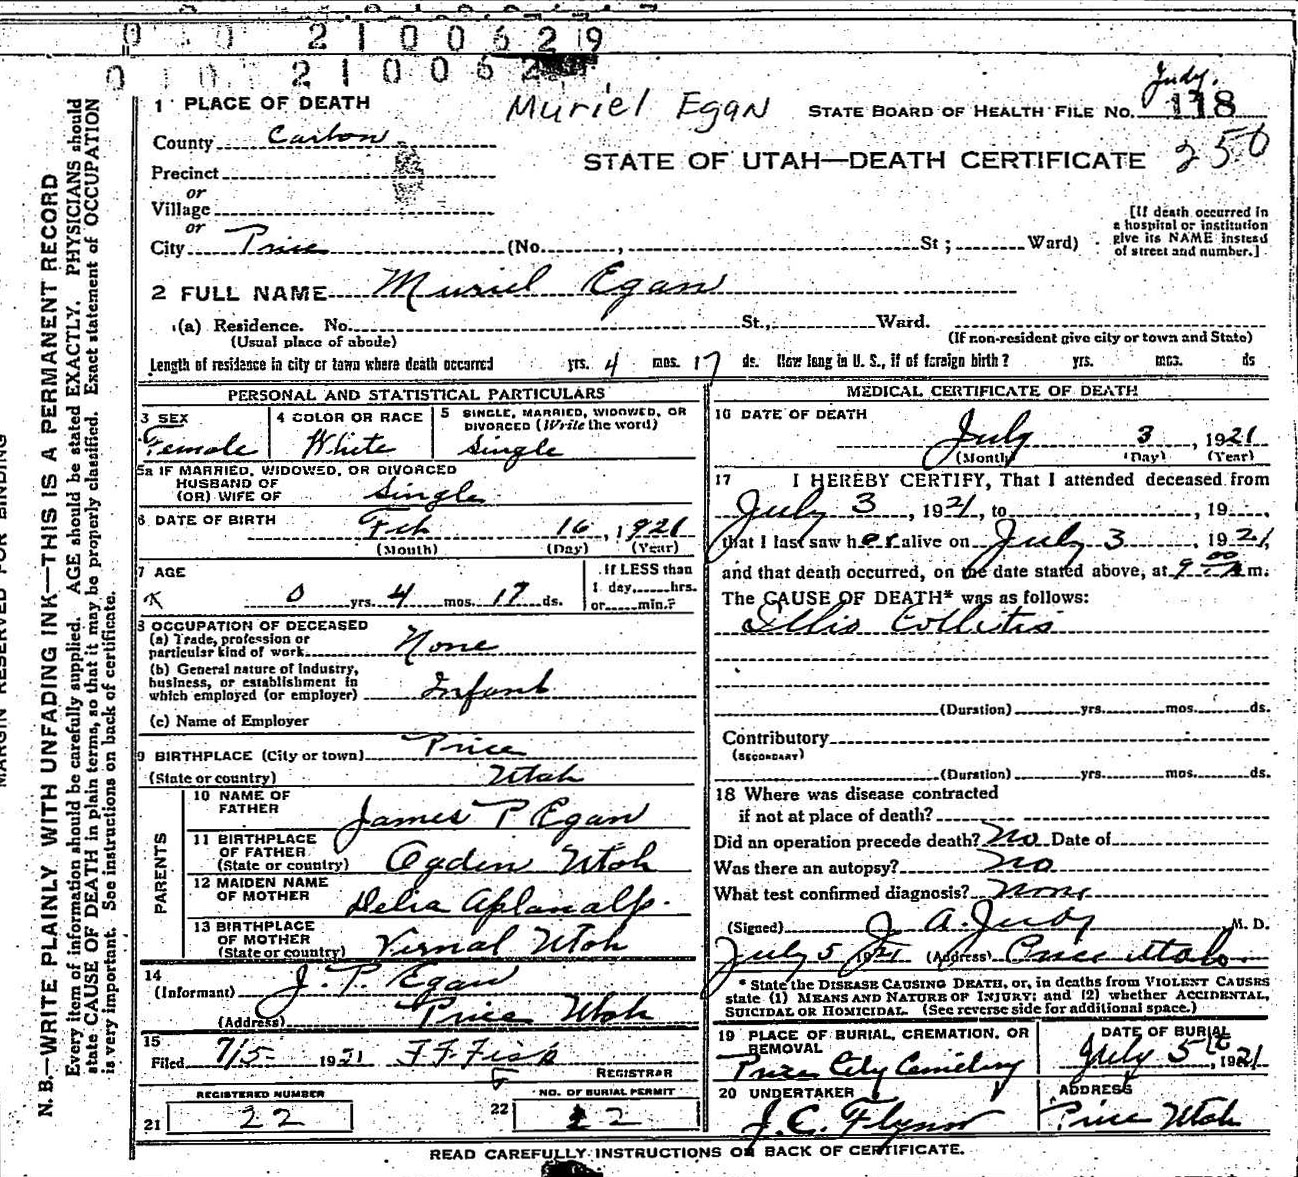 0 0 2 1 0 0 6 2 9
0 0 2 1 0 0 6 2
Judy.
1 PLACE OF DEATH Muriel Egan STATE BOARD OF HEALTH FILE NO. 118
County Carbon
STATE OF UTAH—DEATH CERTIFICATE 250
Precinct
or
Village
or
City Price (No. , St ; Ward)
[If death occurred in
a hospital or institution
give its NAME instead
of street and number.]
2 FULL NAME Muriel Egan
(a) Residence. No. St., Ward.
(Usual place of abode) (If non-resident give city or town and State)
Length of residence in city or town where death occurred yrs. 4 mos. 17 ds. How long in U. S., if of foreign birth? yrs. mos. ds
PERSONAL AND STATISTICAL PARTICULARS
3 SEX Female
4 COLOR OR RACE White
5 SINGLE, MARRIED, WIDOWED, OR
DIVORCED (Write the word)
Single
5a IF MARRIED, WIDOWED, OR DIVORCED
HUSBAND OF
(OR) WIFE OF Single
6 DATE OF BIRTH Feb 16, 1921
(Month) (Day) (Year)
7 AGE
0 yrs. 4 mos. 17 ds.
If LESS than
1 day, hrs.
or min.?
8 OCCUPATION OF DECEASED
(a) Trade, profession or
particular kind of work None
(b) General nature of industry,
business, or establishment in
which employed (or employer) Infant
(c) Name of Employer
9 BIRTHPLACE (City or town) Price
(State or country) Utah
PARENTS
10 NAME OF
FATHER James P Egan
11 BIRTHPLACE
OF FATHER
(State or country) Ogden Utah
12 MAIDEN NAME
OF MOTHER Delia Aplanalp.
13 BIRTHPLACE
OF MOTHER
(State or country) Vernal Utah
14
(Informant) J. P. Egan
(Address) Price Utah
15
Filed 7/5 1921 F F Fisk
REGISTRAR
REGISTERED NUMBER
21 22
NO. OF BURIAL PERMIT
22 22
MEDICAL CERTIFICATE OF DEATH
16 DATE OF DEATH
July 3, 1921
(Month) (Day) (Year)
17 I HEREBY CERTIFY, That I attended deceased from
July 3, 1921, to , 19 ,
that I last saw her alive on July 3, 1921,
and that death occurred, on the date stated above, at 9 00 A m.
The CAUSE OF DEATH* was as follows:
Illio Collitis
(Duration) yrs. mos. ds.
Contributory
(SECONDARY)
(Duration) yrs. mos. ds.
18 Where was disease contracted
if not at place of death?
Did an operation precede death? No Date of
Was there an autopsy? No
What test confirmed diagnosis? None
(Signed) J. A. Judy M. D.
July 5 1921 (Address) Price Utah
* State the DISEASE CAUSING DEATH, or, in deaths from VIOLENT CAUSES
state (1) MEANS AND NATURE OF INJURY; and (2) whether ACCIDENTAL,
SUICIDAL OR HOMICIDAL. (See reverse side for additional space.)
19 PLACE OF BURIAL, CREMATION, OR
REMOVAL
Price City Cemetery
DATE OF BURIAL
July 5th, 1921
20 UNDERTAKER
J. C. Flynn
ADDRESS
Price Utah
READ CAREFULLY INSTRUCTIONS ON BACK OF CERTIFICATE.
MARGIN RESERVED FOR BINDING
N. B.—WRITE PLAINLY WITH UNFADING INK—THIS IS A PERMANENT RECORD
Every item of information should be carefully supplied. AGE should be stated EXACTLY. PHYSICIANS should
state CAUSE OF DEATH in plain terms, so that it may be properly classified. Exact statement of OCCUPATION
is very important. See instructions on back of certificate.